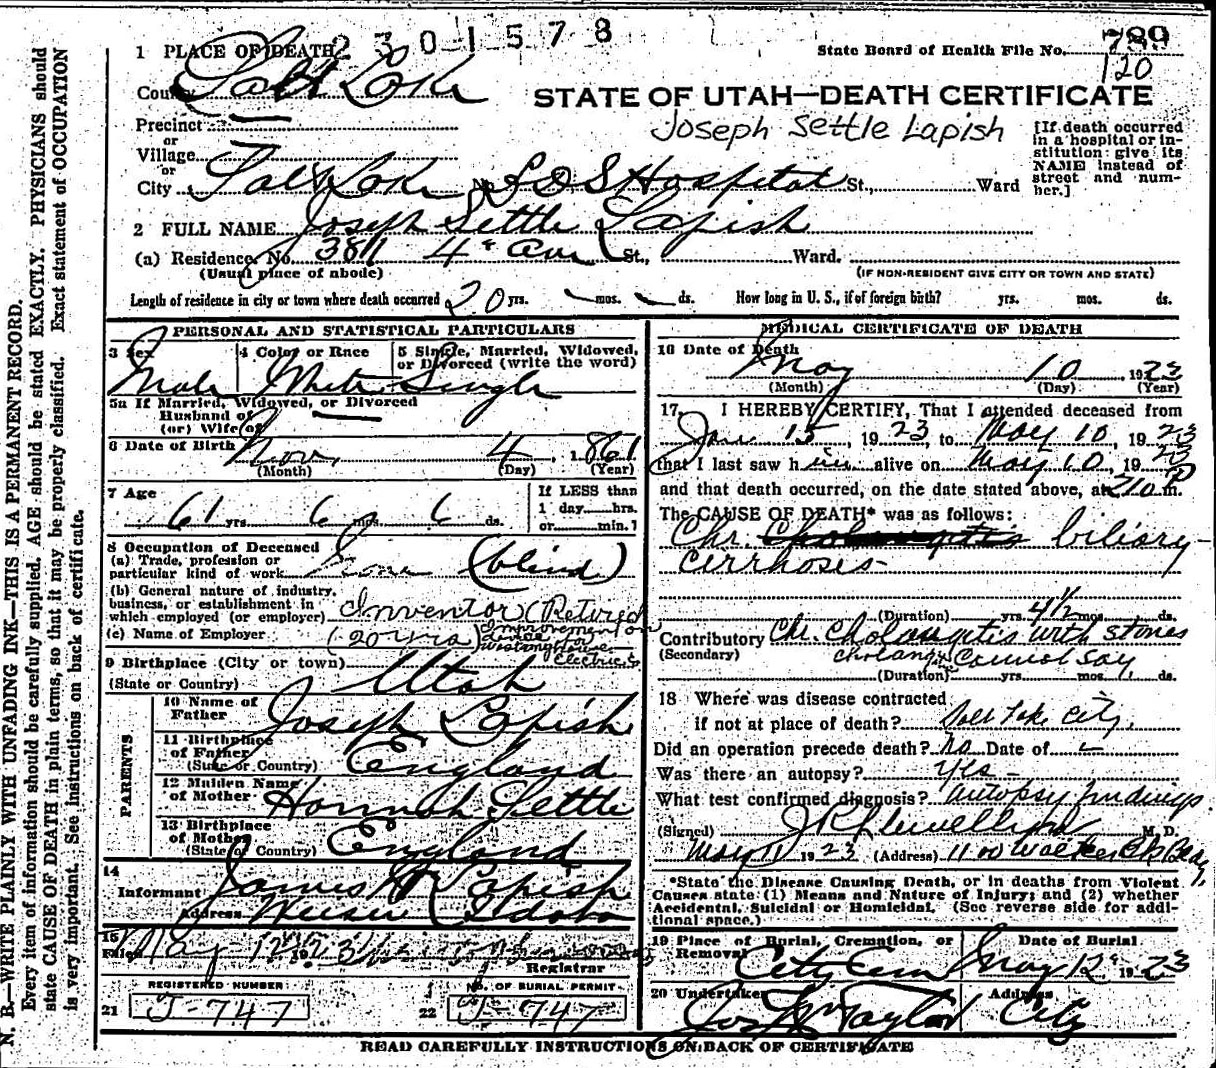 2301578
1 PLACE OF DEATH
State Board of Health File No. 789
120
County Salt Lake
STATE OF UTAH—DEATH CERTIFICATE
Joseph Settle Lapish
Precinct
or
Village
or
City Salt Lake No. LDS Hospital St., Ward
[If death occurred in a hospital or institution give its NAME instead of street and number.]
2 FULL NAME Joseph Settle Lapish
(a) Residence. No. 4 Ave St., Ward.
(Usual place of abode) (IF NON-RESIDENT GIVE CITY OR TOWN AND STATE)
Length of residence in city or town where death occurred 20 yrs. — mos. — ds. How long in U. S., if of foreign birth? yrs. mos. ds.
PERSONAL AND STATISTICAL PARTICULARS
3 Sex Male
4 Color or Race White
5 Single, Married, Widowed, or Divorced (write the word) Single
5a If Married, Widowed, or Divorced
Husband of
(or) Wife of —
6 Date of Birth Nov. 4, 1861
(Month) (Day) (Year)
7 Age 61 yrs. 6 mos. 6 ds.
If LESS than
1 day hrs.
or min.?
8 Occupation of Deceased
(a) Trade, profession or
particular kind of work None (blind)
(b) General nature of industry,
business, or establishment in
which employed (or employer) Inventor (Retired
(c) Name of Employer (20 yrs) Improvement on
device
Westinghouse
Electric
9 Birthplace (City or town)
(State or Country) Utah
PARENTS
10 Name of
Father Joseph Lapish
11 Birthplace
of Father
(State or Country) England
12 Maiden Name
of Mother Hannah Settle
13 Birthplace
of Mother
(State or Country) England
14
Informant James W Lapish
Address Weiser Idaho
15
Filed May 12 1923
Registrar
REGISTERED NUMBER
21 J-747
NO. OF BURIAL PERMIT
22 J-747
MEDICAL CERTIFICATE OF DEATH
16 Date of Death May 10, 1923
(Month) (Day) (Year)
17. I HEREBY CERTIFY, That I attended deceased from
Jan 15, 1923, to May 10, 1923
that I last saw him alive on May 10, 1923
and that death occurred, on the date stated above, at 210 P m.
The CAUSE OF DEATH* was as follows:
Chr. biliary
cirrhosis
(Duration) yrs. 4½ mos. ds.
Contributory Chr. Cholangitis with stones
(Secondary)
(Duration) yrs. mos. ds.
18 Where was disease contracted
if not at place of death? Salt Lake City.
Did an operation precede death? no Date of —
Was there an autopsy? Yes
What test confirmed diagnosis? autopsy findings
(Signed) J R Llewellyn M. D.
May 11 1923 (Address) 1100 Walker Bk Bldg,
*State the Disease Causing Death, or in deaths from Violent
Causes state (1) Means and Nature of Injury; and (2) whether
Accidental, Suicidal or Homicidal. (See reverse side for additional space.)
19 Place of Burial, Cremation, or
Removal City Cem
Date of Burial
May 12, 1923
20 Undertaker Jos Wm Taylor
Address City
READ CAREFULLY INSTRUCTIONS ON BACK OF CERTIFICATE
N. B.—WRITE PLAINLY WITH UNFADING INK—THIS IS A PERMANENT RECORD.
Every item of information should be carefully supplied. AGE should be stated EXACTLY. PHYSICIANS should
state CAUSE OF DEATH in plain terms, so that it may be properly classified. Exact statement of OCCUPATION
is very important. See instructions on back of certificate.